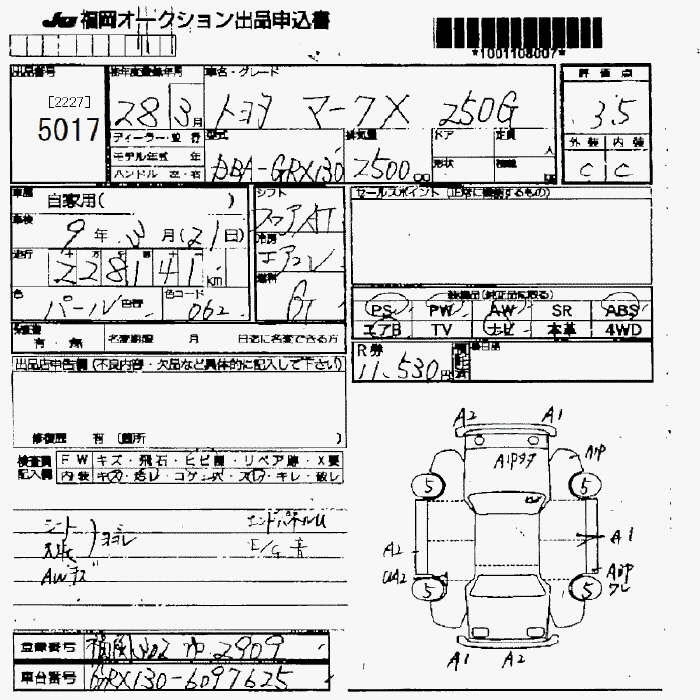 JU 福岡オークション出品申込書
*1001108007*
出品番号
[2227]
5017
初年度登録年月
28 3月
車名・グレード
トヨタ マークX 250G
評価点
3.5
外装 内装
C C
ディーラー・並行
モデル年式 年
ハンドル 左・右
型式
DBA-GRX130
排気量
2500cc
ドア
形状
定員 人
積載
車歴
自家用( )
車検
9年3月(21日)
走行
228141km
色
パール 色替
色コード
062
シフト
フロアAT
冷房
エアコン
燃料
セールスポイント (正常に機能するもの)
装備品(純正品に限る)
PS PW AW SR ABS
エアB TV ナビ 本革 4WD
有・無
名変期限 月 日迄に名変できる方
R券
11,530円
出品店申告欄 (不良内容・欠品など具体的に記入して下さい)
修復歴 有 (箇所 )
検査員記入欄
FW キズ・飛石・ヒビ・リペア跡・X要
内装 キズ・汚レ・コゲ・穴・スレ・キレ・破レ
シート
天張 ヨゴレ
AWキズ
エンドパネルU
E/G音
A2 A1
A1Pタテ
A1P
5 5
A2
A1
UA2
5 5
A1 A2
登録番号 2909
車台番号 GRX130-6097625